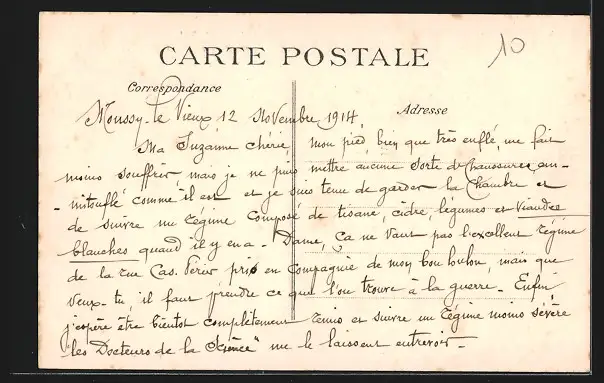 10
CARTE POSTALE
Correspondance
Adresse
Moussy-le Vieux 12 Novembre 1914
Ma Suzanne chérie, mon pied, bien que très enflé me fait
moins souffrir, mais je ne puis mettre aucune sorte de chaussures, em-
-mitouflé comme il est et je suis tenu de garder la Chambre et
de suivre un régime composé de tisane, cidre, légumes et viandes
blanches quand il y en a - Dame, ça ne vaut pas l'excellent régime
de la rue Cas. Périer pris en compagnie de mon bon loulou, mais que
veux-tu, il faut prendre ce que l'on trouve à la guerre - Enfin
j'espère être bientôt complètement remis et suivre un régime moins sévère
"les Docteurs de la Science" me le laissent entrevoir -